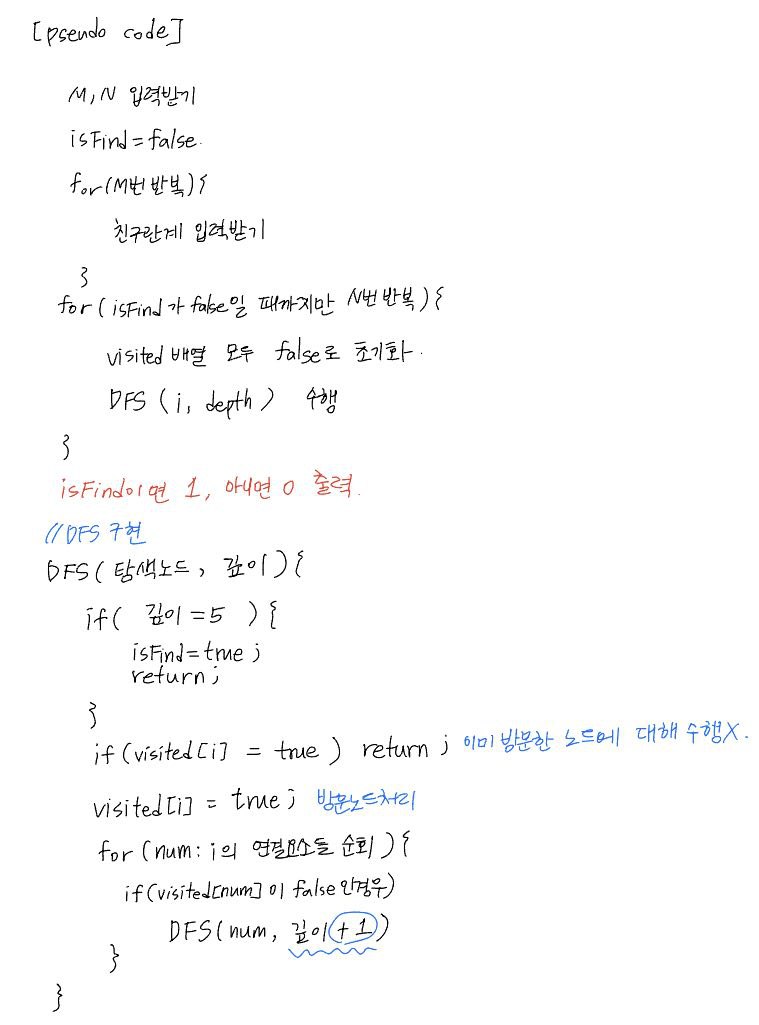 [pseudo code]
M, N 입력받기
isFind = false.
for(M번 반복){
친구관계 입력받기
}
for ( isFind가 false일 때까지만 N번 반복 ) {
visited 배열 모두 false로 초기화.
DFS ( i, depth ) 수행
}
isFind이면 1, 아니면 0 출력.
//DFS 구현
DFS( 탐색노드, 깊이 ) {
if( 깊이 = 5 ) {
isFind = true ;
return ;
}
if (visited[i] = true ) return ; 이미 방문한 노드에 대해 수행X.
visited[i] = true ; 방문노드처리
for (num : i의 연결요소들 순회 ) {
if(visited[num] 이 false 인경우)
DFS(num, 깊이 + 1 )
}
}